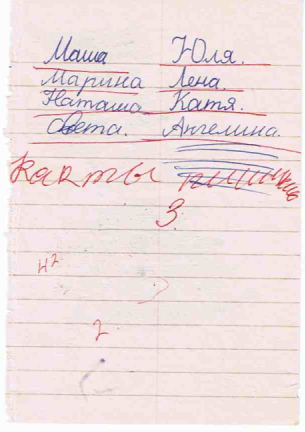 Маша Юля.
Марина Лена.
Наташа Катя.
Света. Ангелина.
Карты
3.
н2
2